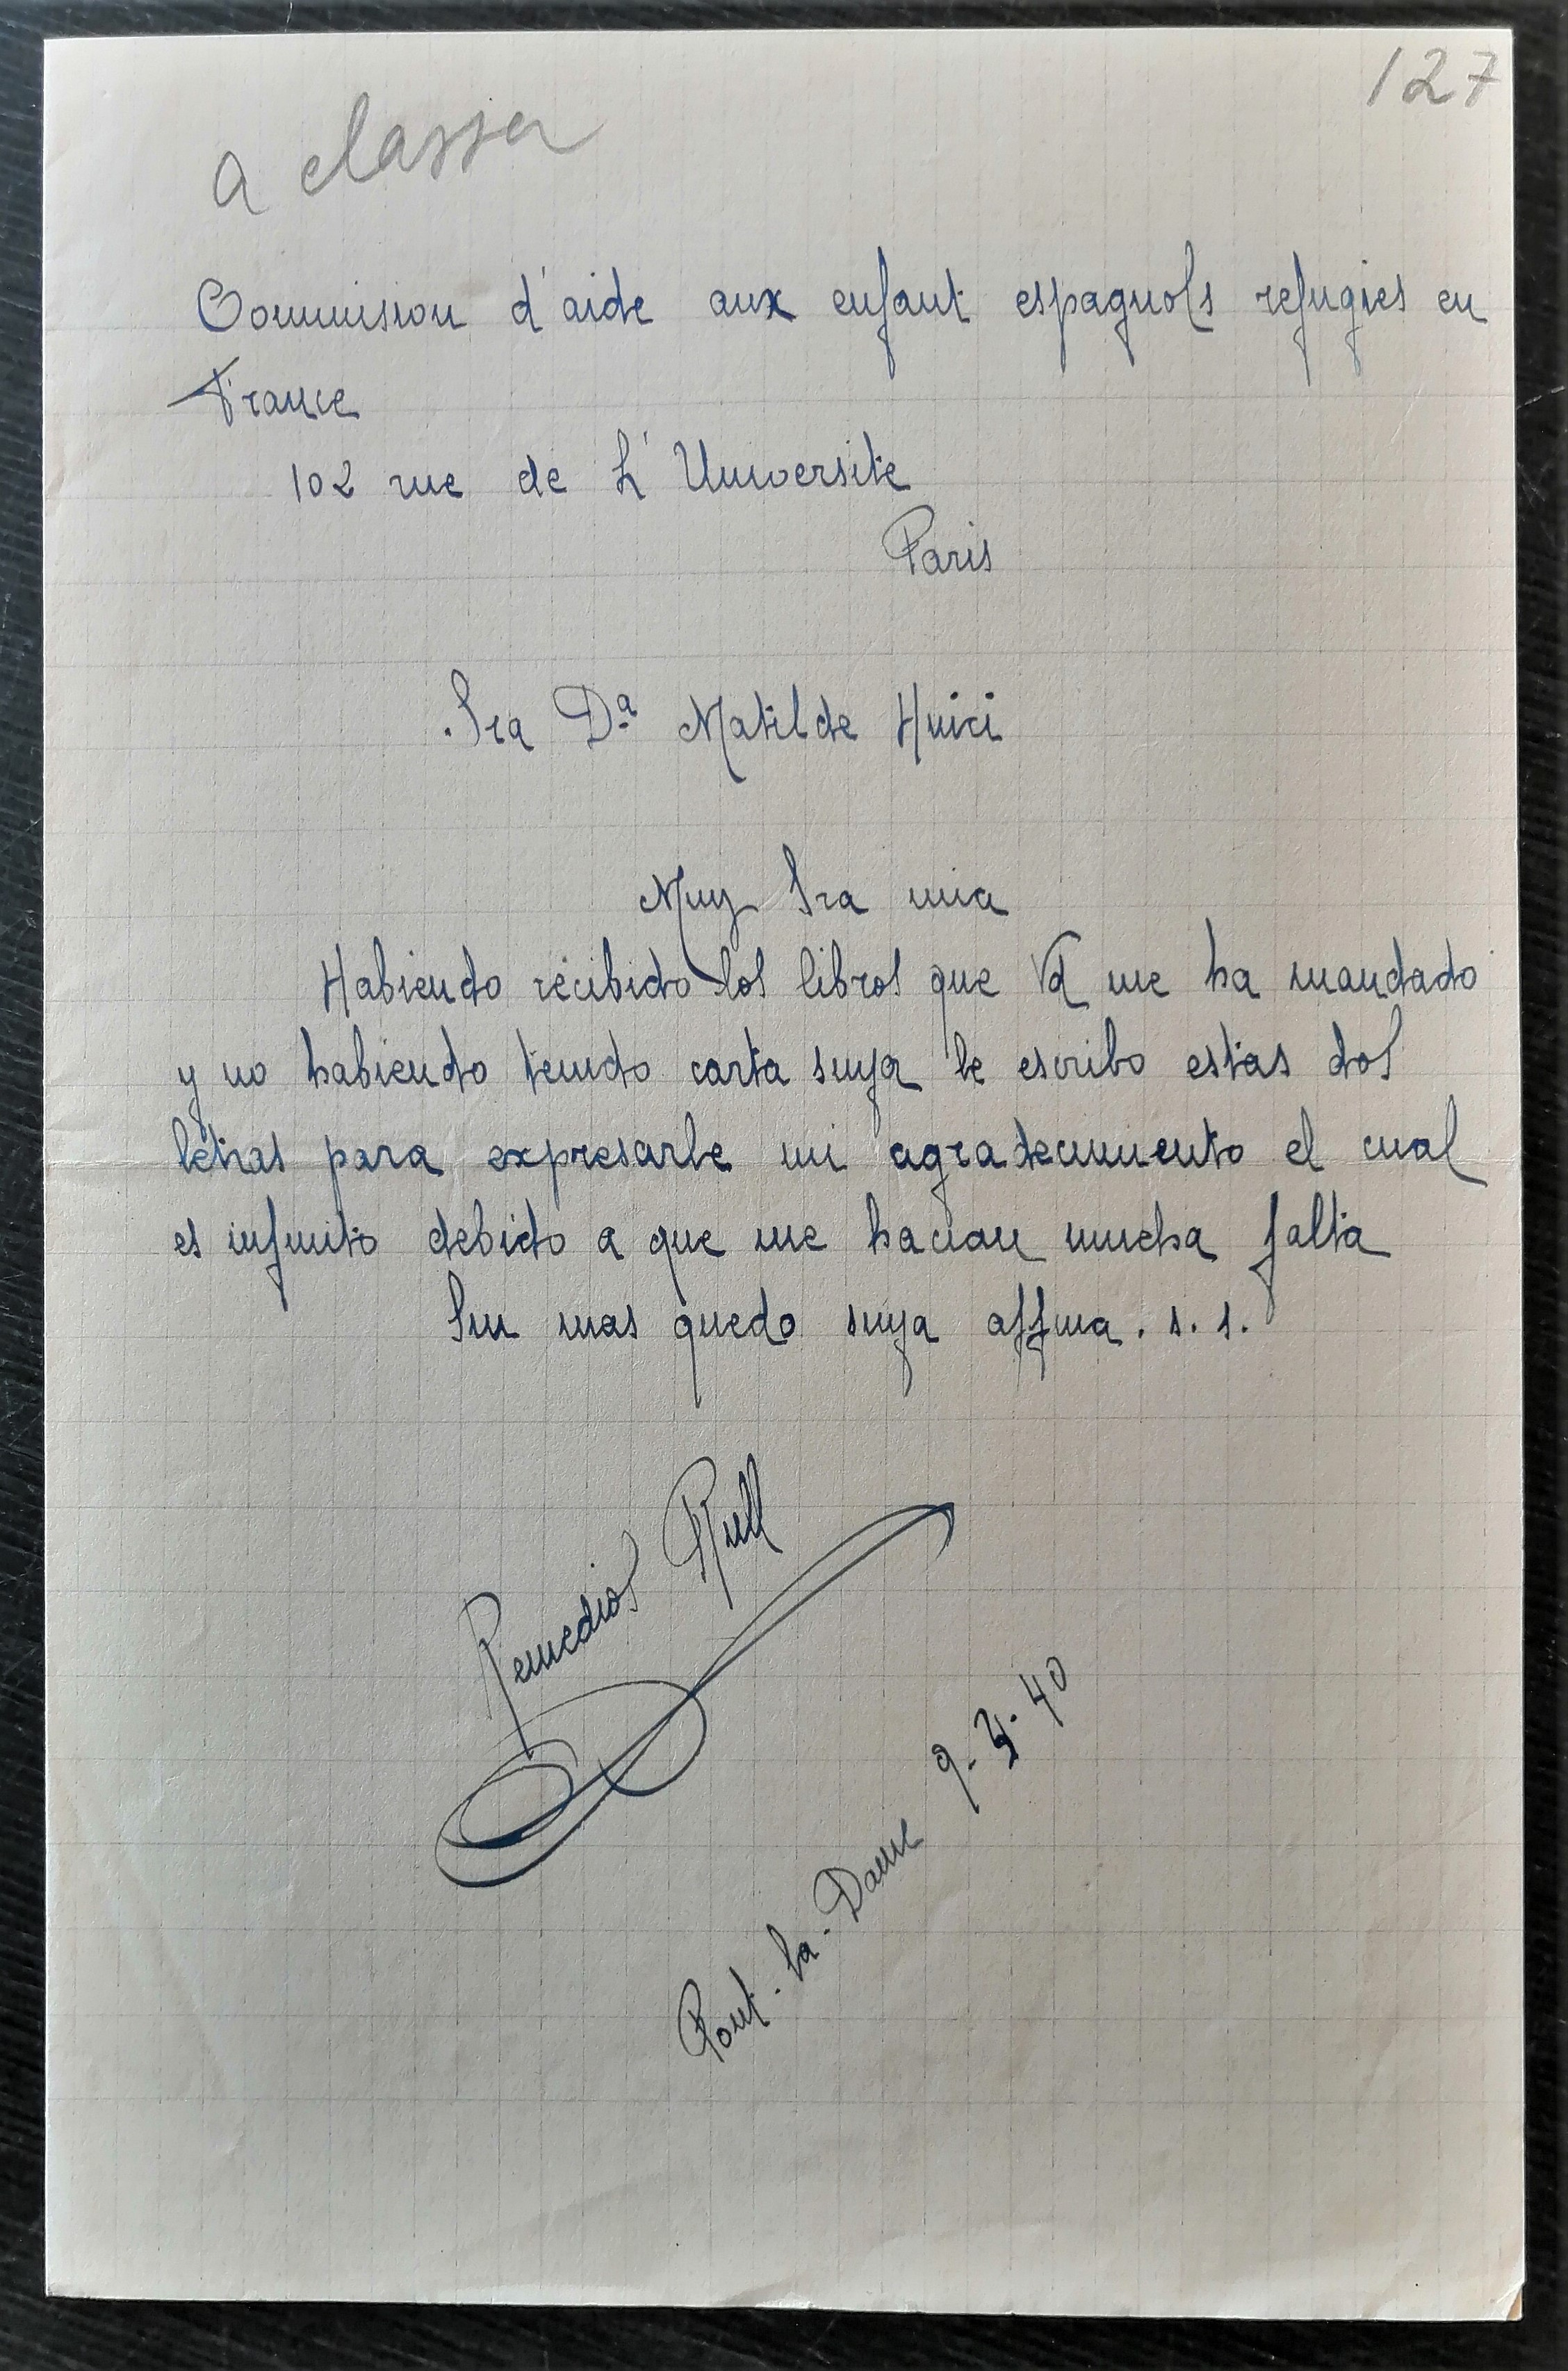 127
a classer
Commision d'aide aux enfant espagnols refugies en
France
102 rue de L'Universite
Paris
Sra Dª Matilde Huici
Muy Sra mia
Habiendo recibido los libros que Vd me ha mandado
y no habiendo tenido carta suya le escribo estas dos
letras para expresarle mi agradecimiento el cual
es infinito debido a que me hacian mucha falta
Sin mas quedo suya affma. s. s.
Remedios Rull
Pont-la-Dame 9-3-40